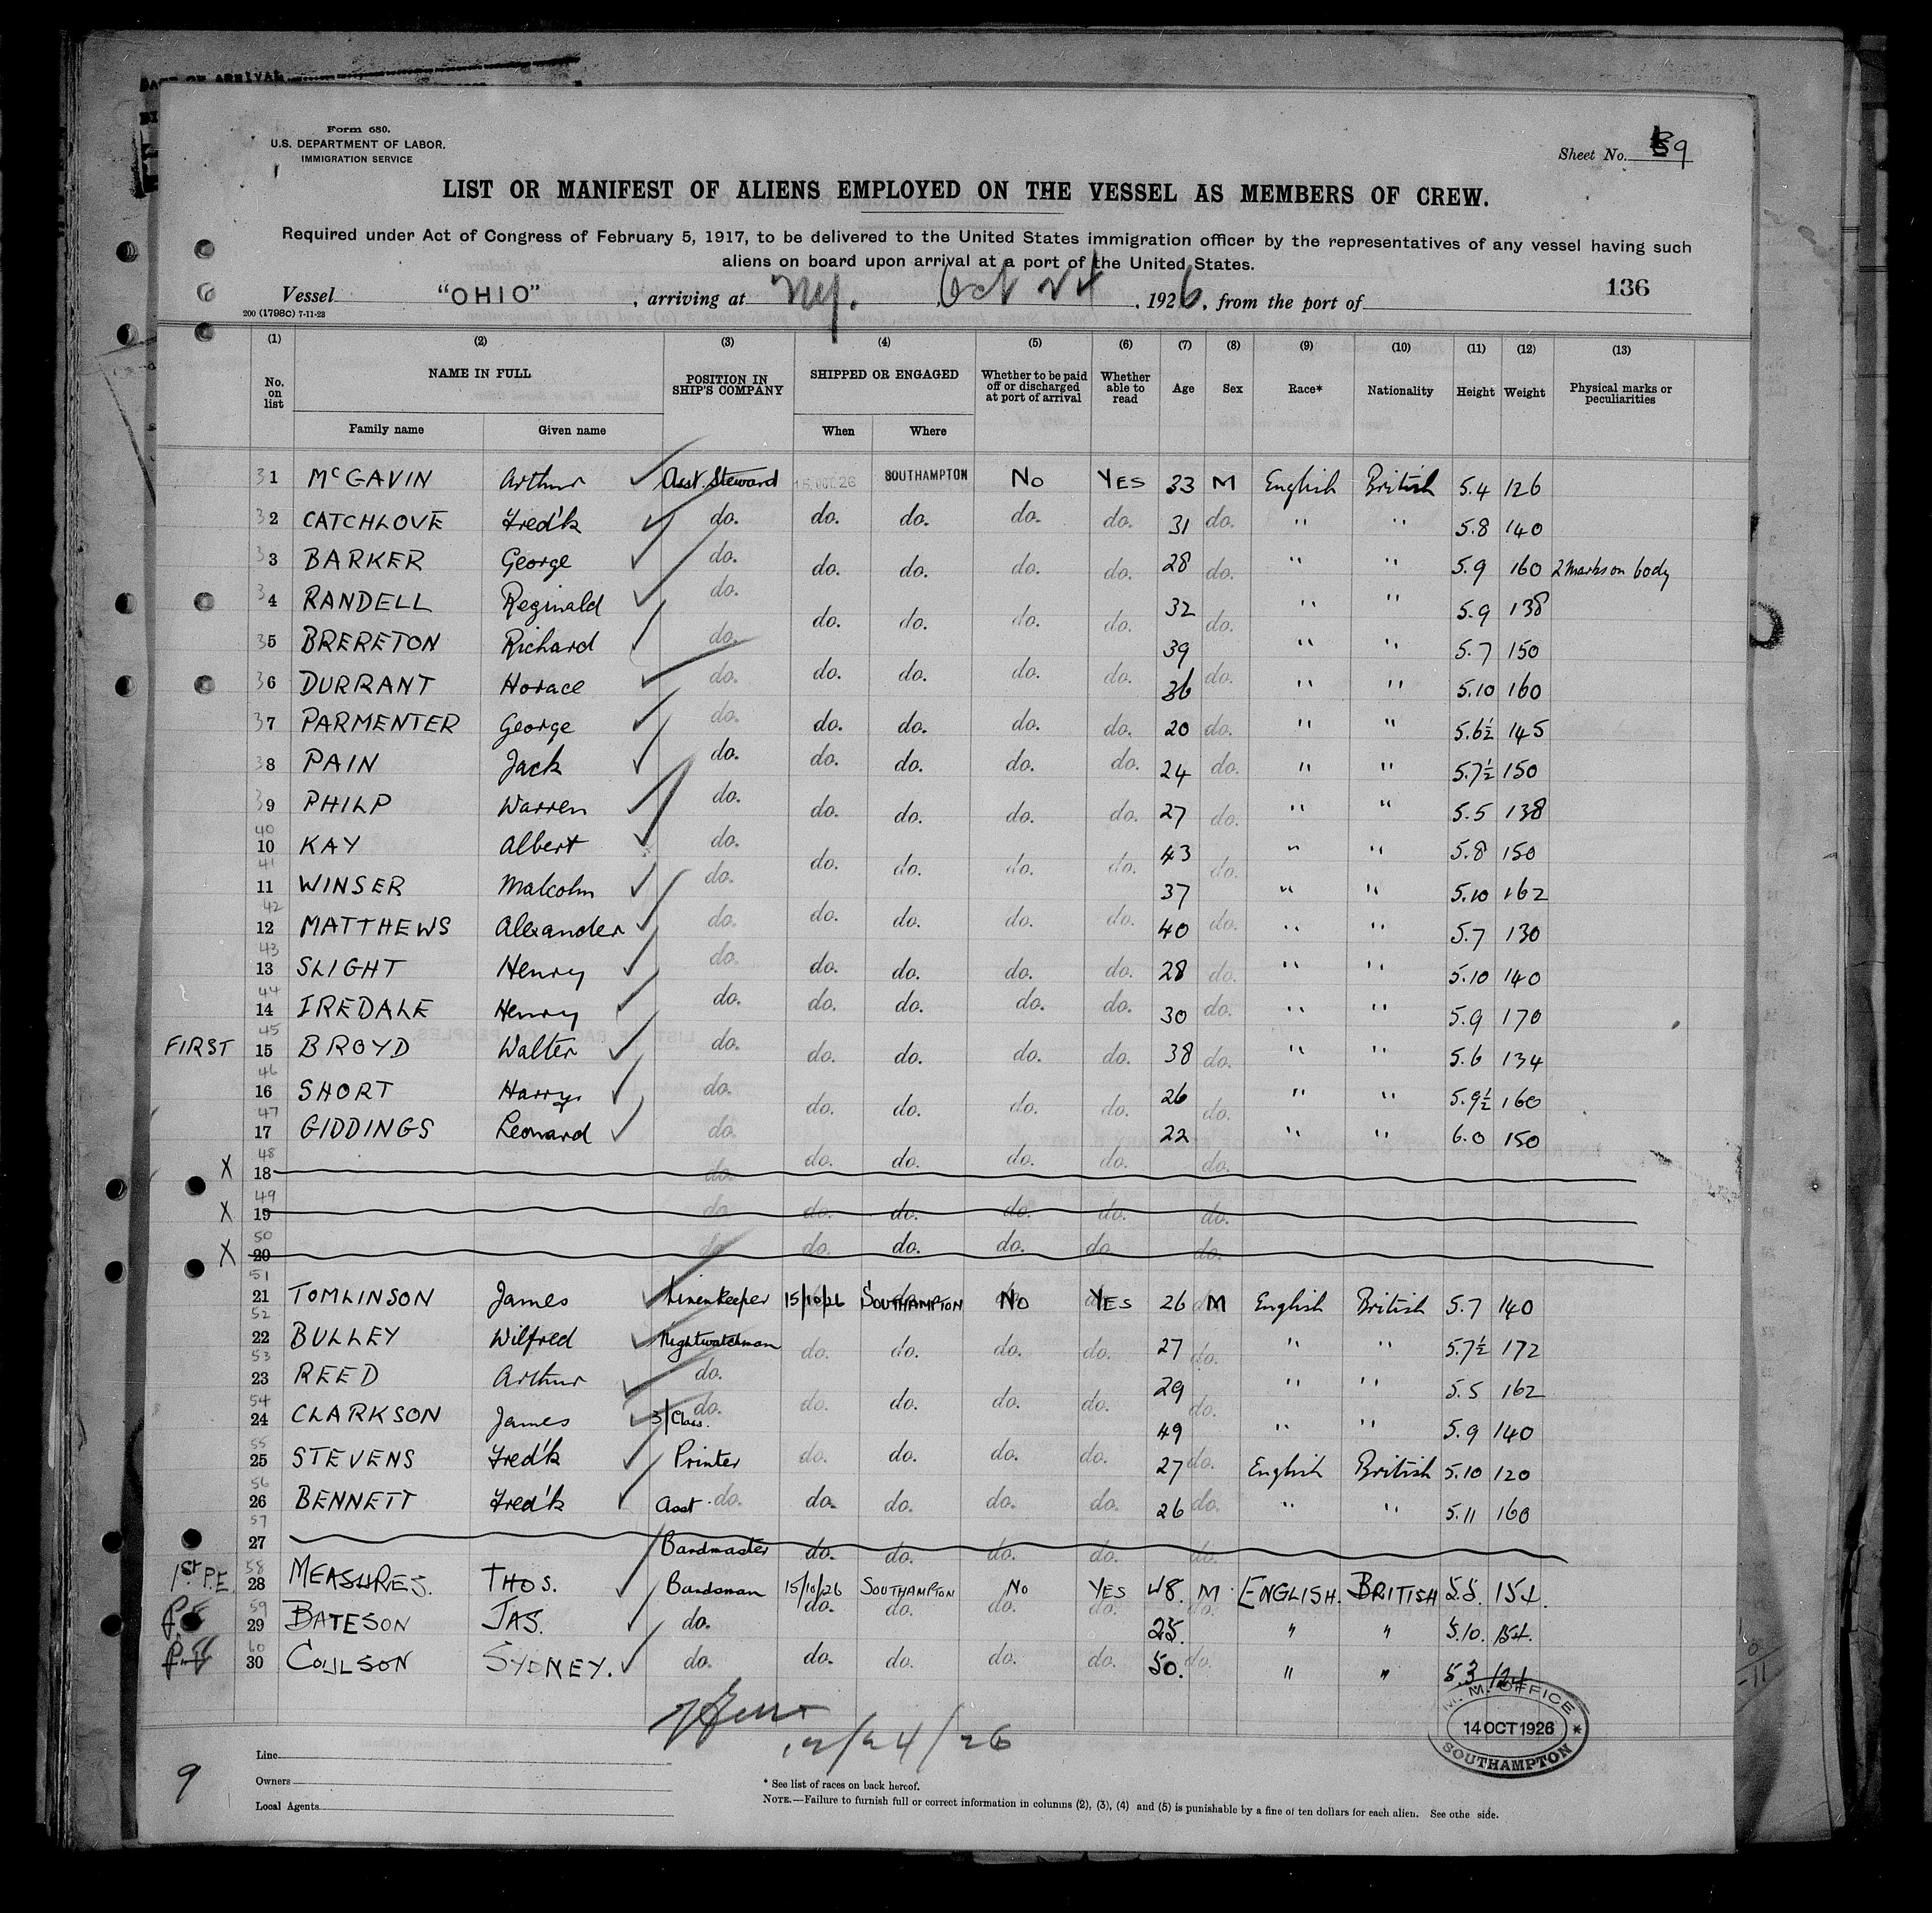 Form 680.
U.S. DEPARTMENT OF LABOR.
IMMIGRATION SERVICE
Sheet No. 9
LIST OR MANIFEST OF ALIENS EMPLOYED ON THE VESSEL AS MEMBERS OF CREW.
Required under Act of Congress of February 5, 1917, to be delivered to the United States immigration officer by the representatives of any vessel having such
aliens on board upon arrival at a port of the United States.
136
Vessel "OHIO", arriving at N.Y., Oct 24, 1926, from the port of
200 (1798c) 7-11-23
(1) (2) (3) (4) (5) (6) (7) (8) (9) (10) (11) (12) (13)
No. on list NAME IN FULL POSITION IN SHIP'S COMPANY SHIPPED OR ENGAGED Whether to be paid off or discharged at port of arrival Whether able to read Age Sex Race* Nationality Height Weight Physical marks or peculiarities
Family name Given name When Where
31 McGAVIN Arthur Asst. Steward 15 OCT 26 SOUTHAMPTON No YES 33 M English British 5.4 126
32 CATCHLOVE Fred'k do. do. do. do. do. 31 do. " " 5.8 140
33 BARKER George do. do. do. do. do. 28 do. " " 5.9 160 2 marks on body
34 RANDELL Reginald do. do. do. do. do. 32 do. " " 5.9 138
35 BRERETON Richard do. 39 " " 5.7 150
36 DURRANT Horace do. do. do. do. do. 36 do. " " 5.10 160
37 PARMENTER George do. do. do. do. do. 20 do. " " 5.6½ 145
38 PAIN Jack do. do. do. do. do. 24 do. " " 5.7½ 150
39 PHILP Warren do. do. do. do. do. 27 do. " " 5.5 138
40 10 KAY Albert do. do. do. do. do. 43 do. " " 5.8 150
41 11 WINSER Malcolm do. 37 " " 5.10 162
42 12 MATTHEWS Alexander do. do. do. do. do. 40 do. " " 5.7 130
43 13 SLIGHT Henry do. do. do. do. do. 28 do. " " 5.10 140
44 14 IREDALE Henry do. do. do. do. do. 30 do. " " 5.9 170
FIRST 45 15 BROYD Walter do. do. do. do. do. 38 do. " " 5.6 134
46 16 SHORT Harry do. do. do. do. do. 26 do. " " 5.9½ 160
47 17 GIDDINGS Leonard do. 22 " " 6.0 150
X 48 18 do. do. do. do. do. do.
X 49 19 do. do. do. do. do. do.
X 50 20 do. do. do. do. do. do.
51 21 TOMLINSON James Linenkeeper 15/10/26 SOUTHAMPTON No YES 26 M English British 5.7 140
52 22 BULLEY Wilfred Nightwatchman do. do. do. do. 27 do. " " 5.7½ 172
53 23 REED Arthur do. 29 " " 5.5 162
54 24 CLARKSON James do. 3/Class. do. do. do. do. 49 do. " " 5.9 140
55 25 STEVENS Fred'k Printer do. do. do. do. 27 do. English British 5.10 120
56 26 BENNETT Fred'k Asst. do. do. do. do. do. 26 do. " " 5.11 160
57 27 Bandmaster do. do. do. do. do.
1st P.E. 58 28 MEASURES. THOS. Bandsman 15/10/26 SOUTHAMPTON No YES 48. M ENGLISH. BRITISH 5.5. 154.
do. do. do. do. do.
59 29 BATESON JAS. do. 25. " " 5.10. 154.
60 30 COULSON SYDNEY. do. do. do. do. do. 50. do. " " 5.3 124
M. M. OFFICE
14 OCT 1926 *
SOUTHAMPTON
Line
Owners
Local Agents
9
* See list of races on back hereof.
NOTE.—Failure to furnish full or correct information in columns (2), (3), (4) and (5) is punishable by a fine of ten dollars for each alien. See othe side.